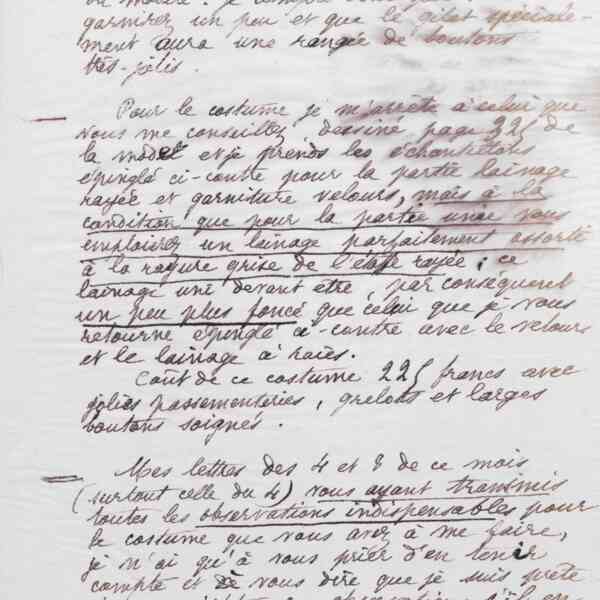 garnirez un peu et que le gilet spéciale-
ment aura une rangée de boutons
très-jolis.
Pour le costume je m'arrête à celui que
vous me conseillez, dessiné page 225 de
la mode et je prends les échantillons
épinglé ci-contre pour la partie lainage
rayée et garniture velours, mais à la
condition que pour la partie unie vous
emploierez un lainage parfaitement assorti
à la rayure grise de l'étoffe rayée; ce
lainage uni devant être par conséquent
un peu plus foncé que celui que je vous
retourne épinglé ci-contre avec le velours
et le lainage à raies.
Coût de ce costume 225 francs avec
jolies passementeries, grelots et larges
boutons soignés.
Mes lettres des 4 et 8 de ce mois
(surtout celle du 4) vous ayant transmis
toutes les observations indispensables pour
le costume que vous avez à me faire,
je n'ai qu'à vous prier d'en tenir
compte et de vous dire que je suis prête